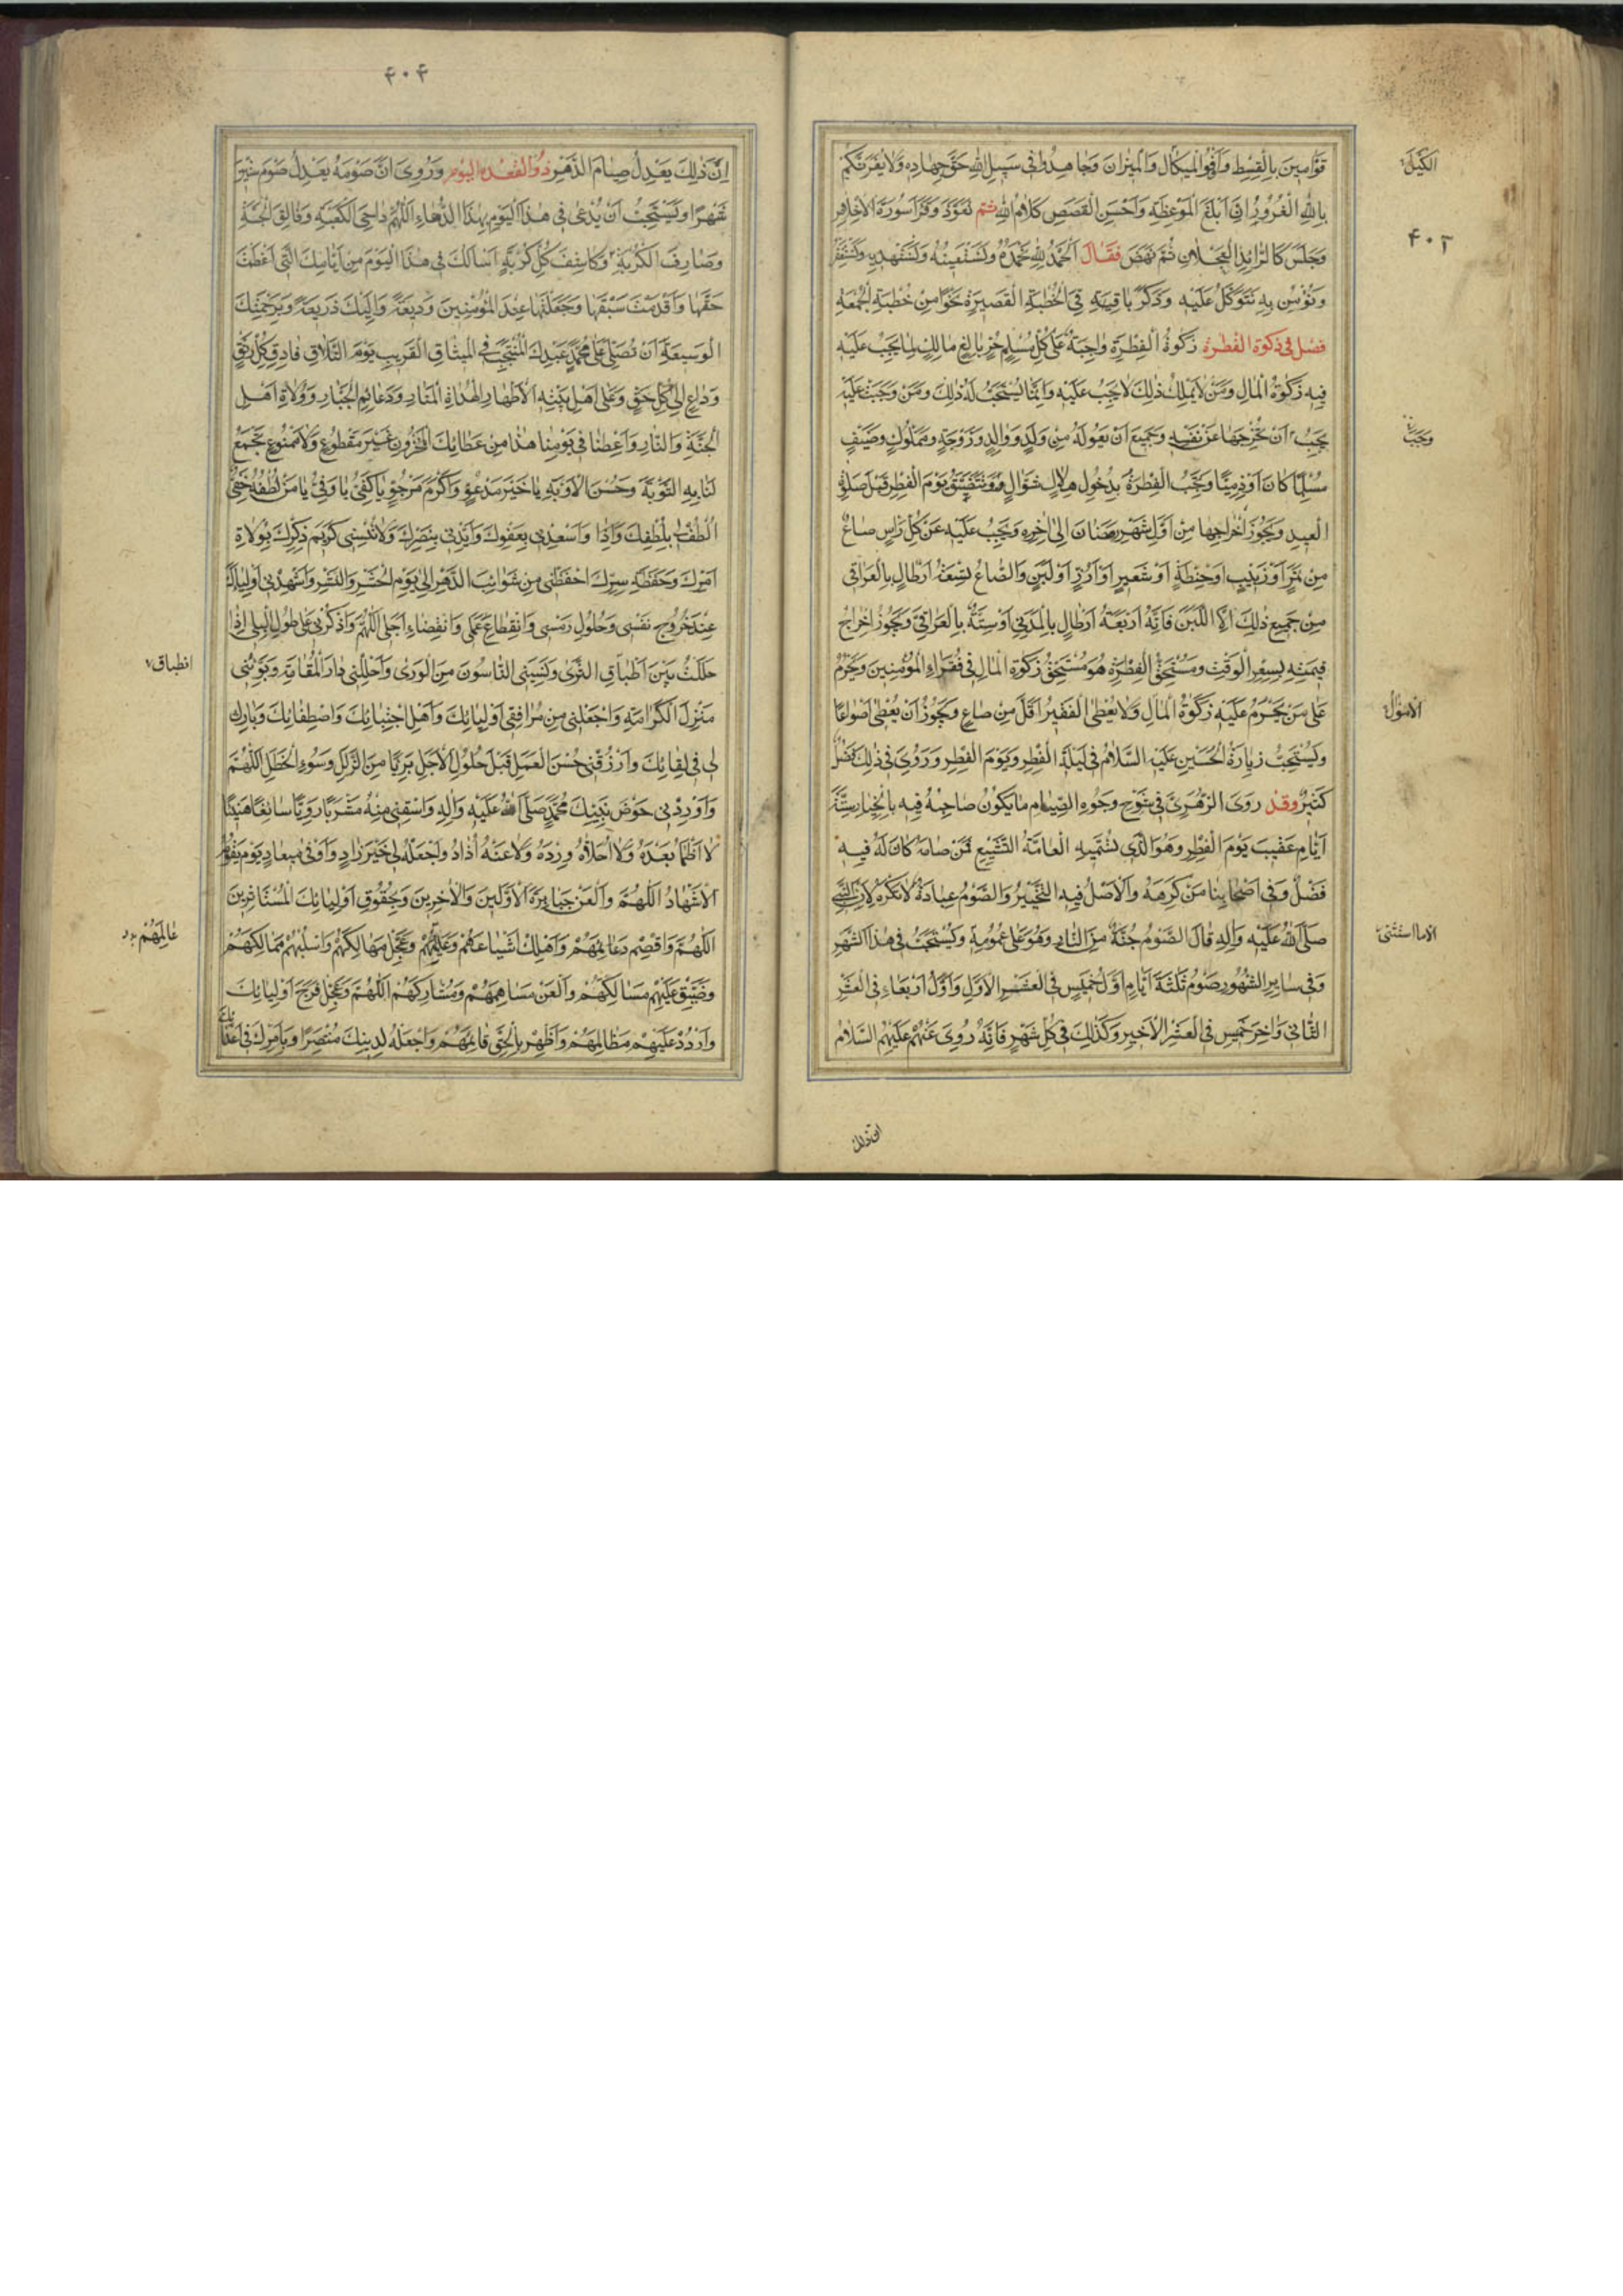 قَوَّامِينَ بِالْقِسْطِ وَاَوْفُوا الْمِكْيَالَ وَالْمِيزَانَ وَجَاهِدُوا فِى سَبِيلِ اللهِ حَقَّ جِهَادِهِ وَلَا يَغُرَّنَّكُمْ
الكَيْلَ
بِاللهِ الْغَرُورُ اِنَّ اَبْلَغَ الْمَوْعِظَةِ وَاَحْسَنَ الْقَصَصِ كَلَامُ اللهِ ثم تَعَوَّذَ وَقَرَأَ سُورَةَ الْاِخْلَاصِ
۴۰۳
وَجَلَسَ كَالرَّائِدِ الْعَجْلَانِ ثُمَّ نَهَضَ فَقَالَ اَلْحَمْدُ لِلهِ نَحْمَدُهُ وَنَسْتَعِينُهُ وَنَسْتَهْدِيهِ وَنَسْتَغْفِرُهُ
وَنُؤْمِنُ بِهِ نَتَوَكَّلُ عَلَيْهِ وَذَكَرَ بَاقِيَهِ فِى الْخُطْبَةِ الْقَصِيرَةِ نَحْوًا مِنْ خُطْبَةِ الْجُمْعَةِ
فصل فى زكوة الفطرة زَكوةُ الْفِطْرَةِ وَاجِبَةٌ عَلَى كُلِّ مُسْلِمٍ حُرٍّ بَالِغٍ مَالِكٍ لِمَا يَجِبُ عَلَيْهِ
فِيهِ زَكوةُ الْمَالِ وَمَنْ لَا يَمْلِكُ ذٰلِكَ لَا يَجِبُ عَلَيْهِ وَاِنَّمَا يُسْتَحَبُّ لَهُ ذٰلِكَ وَمَنْ وَجَبَتْ عَلَيْهِ
يَجِبُ اَنْ يُخْرِجَهَا عَنْ نَفْسِهِ وَجَمِيعِ اَنْ يَعُولَهُ مِنْ وَلَدٍ وَوَالِدٍ وَزَوْجَةٍ وَمَمْلُوكٍ وَضَيْفٍ
مُسْلِمًا كَانَ اَوْ ذِمِّيًّا وَيَجِبُ الْفِطْرَةُ بِدُخُولِ هِلَالِ شَوَّالٍ وَيَتَضَيَّقُ يَوْمَ الْفِطْرِ قَبْلَ صَلوةِ
الْعِيدِ وَيَجُوزُ اِخْرَاجُهَا مِنْ اَوَّلِ شَهْرِ رَمَضَانَ اِلىٰ اٰخِرِهِ وَيَجِبُ عَلَيْهِ عَنْ كُلِّ رَأْسٍ صَاعٌ
مِنْ تَمْرٍ اَوْ زَبِيبٍ اَوْ حِنْطَةٍ اَوْ شَعِيرٍ اَوْ اَرُزٍّ اَوْ لَبَنٍ وَالصَّاعُ تِسْعَةُ اَرْطَالٍ بِالْعِرَاقِى
مِنْ جَمِيعِ ذٰلِكَ اِلَّا اللَّبَنَ فَاِنَّهُ اَرْبَعَةُ اَرْطَالٍ بِالْمَدَنِى اَوْ سِتَّةٌ بِالْعِرَاقِى وَيَجُوزُ اِخْرَاجُ
قِيمَتِهِ بِسِعْرِ الْوَقْتِ وَمُسْتَحِقُّ الْفِطْرَةِ هُوَ مُسْتَحِقُّ زَكوةِ الْمَالِ فِى فُقَرَاءِ الْمُؤْمِنِينَ وَيَحْرُمُ
عَلىٰ مَنْ يَحْرُمُ عَلَيْهِ زَكوةُ الْمَالِ وَلَا يُعْطَى الْفَقِيرُ اَقَلَّ مِنْ صَاعٍ وَيَجُوزُ اَنْ يُعْطىٰ اَصْوَاعًا
الاموال
وَيُسْتَحَبُّ زِيَارَةُ الْحُسَيْنِ عَلَيْهِ السَّلَامُ فِى لَيْلَةِ الْفِطْرِ وَيَوْمَ الْفِطْرِ وَرُوِىَ فِى ذٰلِكَ فَضْلٌ
كَثِيرٌ وقد رَوَى الزُّهْرِىُّ فِى شَرْحِ وُجُوهِ الصِّيَامِ مَا يَكُونُ صَاحِبُهُ فِيهِ بِالْخِيَارِ سِتَّةُ
اَيَّامٍ عَقِيبَ يَوْمِ الْفِطْرِ وَهُوَ الَّذِى تُسَمِّيهِ الْعَامَّةُ التَّشْيِيعَ فَمَنْ صَامَهُ كَانَ لَهُ فِيهِ
فَضْلٌ وَفِى اَصْحَابِنَا مَنْ كَرِهَهُ وَالْاَصْلُ فِيهِ التَّخْيِيرُ وَالصَّوْمُ عِبَادَةٌ لَا تُكْرَهُ لِاَنَّ النَّبِىَّ
صَلَّى اللهُ عَلَيْهِ وَاٰلِهِ قَالَ الصَّوْمُ جُنَّةٌ مِنَ النَّارِ وَهُوَ عَلىٰ عُمُومِهِ وَيُسْتَحَبُّ فِى هٰذَا الشَّهْرِ
الا ما استثنى
وَفِى سَايِرِ الشُّهُورِ صَوْمُ ثَلٰثَةِ اَيَّامٍ اَوَّلُ خَمِيسٍ فِى الْعَشْرِ الْاَوَّلِ وَاَوَّلُ اَرْبَعَاءَ فِى الْعَشْرِ
الثَّانِى وَاٰخِرُ خَمِيسٍ فِى الْعَشْرِ الْاَخِيرِ وَكَذٰلِكَ فِى كُلِّ شَهْرٍ فَاِنَّهُ رُوِىَ عَنْهُمْ عَلَيْهِمُ السَّلَامُ
ان ذلك
۴۰۴
اِنَّ ذٰلِكَ يَعْدِلُ صِيَامَ الدَّهْرِ ذو القعدة اليوم وَرُوِىَ اَنَّ صَوْمَهُ يَعْدِلُ صَوْمَ سِتِّينَ
شَهْرًا وَيُسْتَحَبُّ اَنْ يُدْعىٰ فِى هٰذَا الْيَوْمِ بِهٰذَا الدُّعَاءِ اَللّٰهُمَّ دَاحِىَ الْكَعْبَةِ وَفَالِقَ الْحَبَّةِ
وَصَارِفَ الْكُرْبَةِ وَكَاشِفَ كُلِّ كُرْبَةٍ اَسْاَلُكَ فِى هٰذَا الْيَوْمِ مِنْ اَيَّامِكَ الَّتِى اَعْظَمْتَ
حَقَّهَا وَاَقْدَمْتَ سَبْقَهَا وَجَعَلْتَهَا عِنْدَ الْمُؤْمِنِينَ وَدِيعَةً وَاِلَيْكَ ذَرِيعَةً وَبِرَحْمَتِكَ
الْوَسِيعَةِ اَنْ تُصَلِّىَ عَلىٰ مُحَمَّدٍ عَبْدِكَ الْمُنْتَجَبِ فِى الْمِيثَاقِ الْقَرِيبِ يَوْمَ التَّلَاقِ فَاتِقِ كُلِّ رَتْقٍ
وَدَاعٍ اِلىٰ كُلِّ حَقٍّ وَعَلىٰ اَهْلِ بَيْتِهِ الْاَطْهَارِ الْهُدَاةِ الْمَنَارِ وَدَعَائِمِ الْجَبَّارِ وَوُلَاةِ اَهْلِ
الْجَنَّةِ وَالنَّارِ وَاَعْطِنَا فِى يَوْمِنَا هٰذَا مِنْ عَطَائِكَ الْمَخْزُونِ غَيْرَ مَقْطُوعٍ وَلَا مَمْنُوعٍ تَجْمَعُ
لَنَا بِهِ التَّوْبَةَ وَحُسْنَ الْاَوْبَةِ يَا خَيْرَ مَدْعُوٍّ وَاَكْرَمَ مَرْجُوٍّ يَا كَفِىُّ يَا وَفِىُّ يَا مَنْ لُطْفُهُ خَفِىٌّ
اُلْطُفْ بِلُطْفِكَ وَاَسْعِدْنِى بِعَفْوِكَ وَاَيِّدْنِى بِنَصْرِكَ وَلَا تُنْسِنِى كَرِيمَ ذِكْرِكَ بِوُلَاةِ
اَمْرِكَ وَحَفَظَةِ سِرِّكَ احْفَظْنِى مِنْ شَوَائِبِ الدَّهْرِ اِلىٰ يَوْمِ الْحَشْرِ وَالنَّشْرِ وَاَشْهِدْنِى اَوْلِيَائَكَ
عِنْدَ خُرُوجِ نَفْسِى وَحُلُولِ رَمْسِى وَانْقِطَاعِ عَمَلِى وَانْقِضَاءِ اَجَلِى اَللّٰهُمَّ وَاذْكُرْنِى عَلىٰ طُولِ الْبِلىٰ اِذَا
حَلَلْتُ بَيْنَ اَطْبَاقِ الثَّرىٰ وَنَسِيَنِى النَّاسُونَ مِنَ الْوَرىٰ وَاَحْلِلْنِى دَارَ الْمُقَامَةِ وَبَوِّئْنِى
انطباق
مَنْزِلَ الْكَرَامَةِ وَاجْعَلْنِى مِنْ مُرَافِقِى اَوْلِيَائِكَ وَاَهْلِ اجْتِبَائِكَ وَاصْطِفَائِكَ وَبَارِكْ
لِى فِى لِقَائِكَ وَارْزُقْنِى حُسْنَ الْعَمَلِ قَبْلَ حُلُولِ الْاَجَلِ بَرِيًّا مِنَ الزَّلَلِ وَسُوءِ الْخَطَلِ اَللّٰهُمَّ
وَاَوْرِدْنِى حَوْضَ نَبِيِّكَ مُحَمَّدٍ صَلَّى اللهُ عَلَيْهِ وَاٰلِهِ وَاسْقِنِى مِنْهُ مَشْرَبًا رَوِيًّا سَائِغًا هَنِيئًا
لَا اَظْمَأُ بَعْدَهُ وَلَا اُحَلَّأُ وِرْدَهُ وَلَا عَنْهُ اُذَادُ وَاجْعَلْهُ لِى خَيْرَ زَادٍ وَاَوْفىٰ مِيعَادٍ يَوْمَ يَقُومُ
الْاَشْهَادُ اَللّٰهُمَّ وَالْعَنْ جَبَابِرَةَ الْاَوَّلِينَ وَالْاٰخِرِينَ وَبِحُقُوقِ اَوْلِيَائِكَ الْمُسْتَأْثِرِينَ
اَللّٰهُمَّ وَاقْصِمْ دَعَائِمَهُمْ وَاَهْلِكْ اَشْيَاعَهُمْ وَعَامِلَهُمْ وَعَجِّلْ مَهَالِكَهُمْ وَاسْلُبْهُمْ مَمَالِكَهُمْ
عَالِمَهُمْ
وَضَيِّقْ عَلَيْهِمْ مَسَالِكَهُمْ وَالْعَنْ مَسَاهِمَهُمْ وَمُشَارِكَهُمْ اَللّٰهُمَّ وَعَجِّلْ فَرَجَ اَوْلِيَائِكَ
وَارْدُدْ عَلَيْهِمْ مَظَالِمَهُمْ وَاَظْهِرْ بِالْحَقِّ قَائِمَهُمْ وَاجْعَلْهُ لِدِينِكَ مُنْتَصِرًا وَبِاَمْرِكَ فِى اَعْدَائِكَ